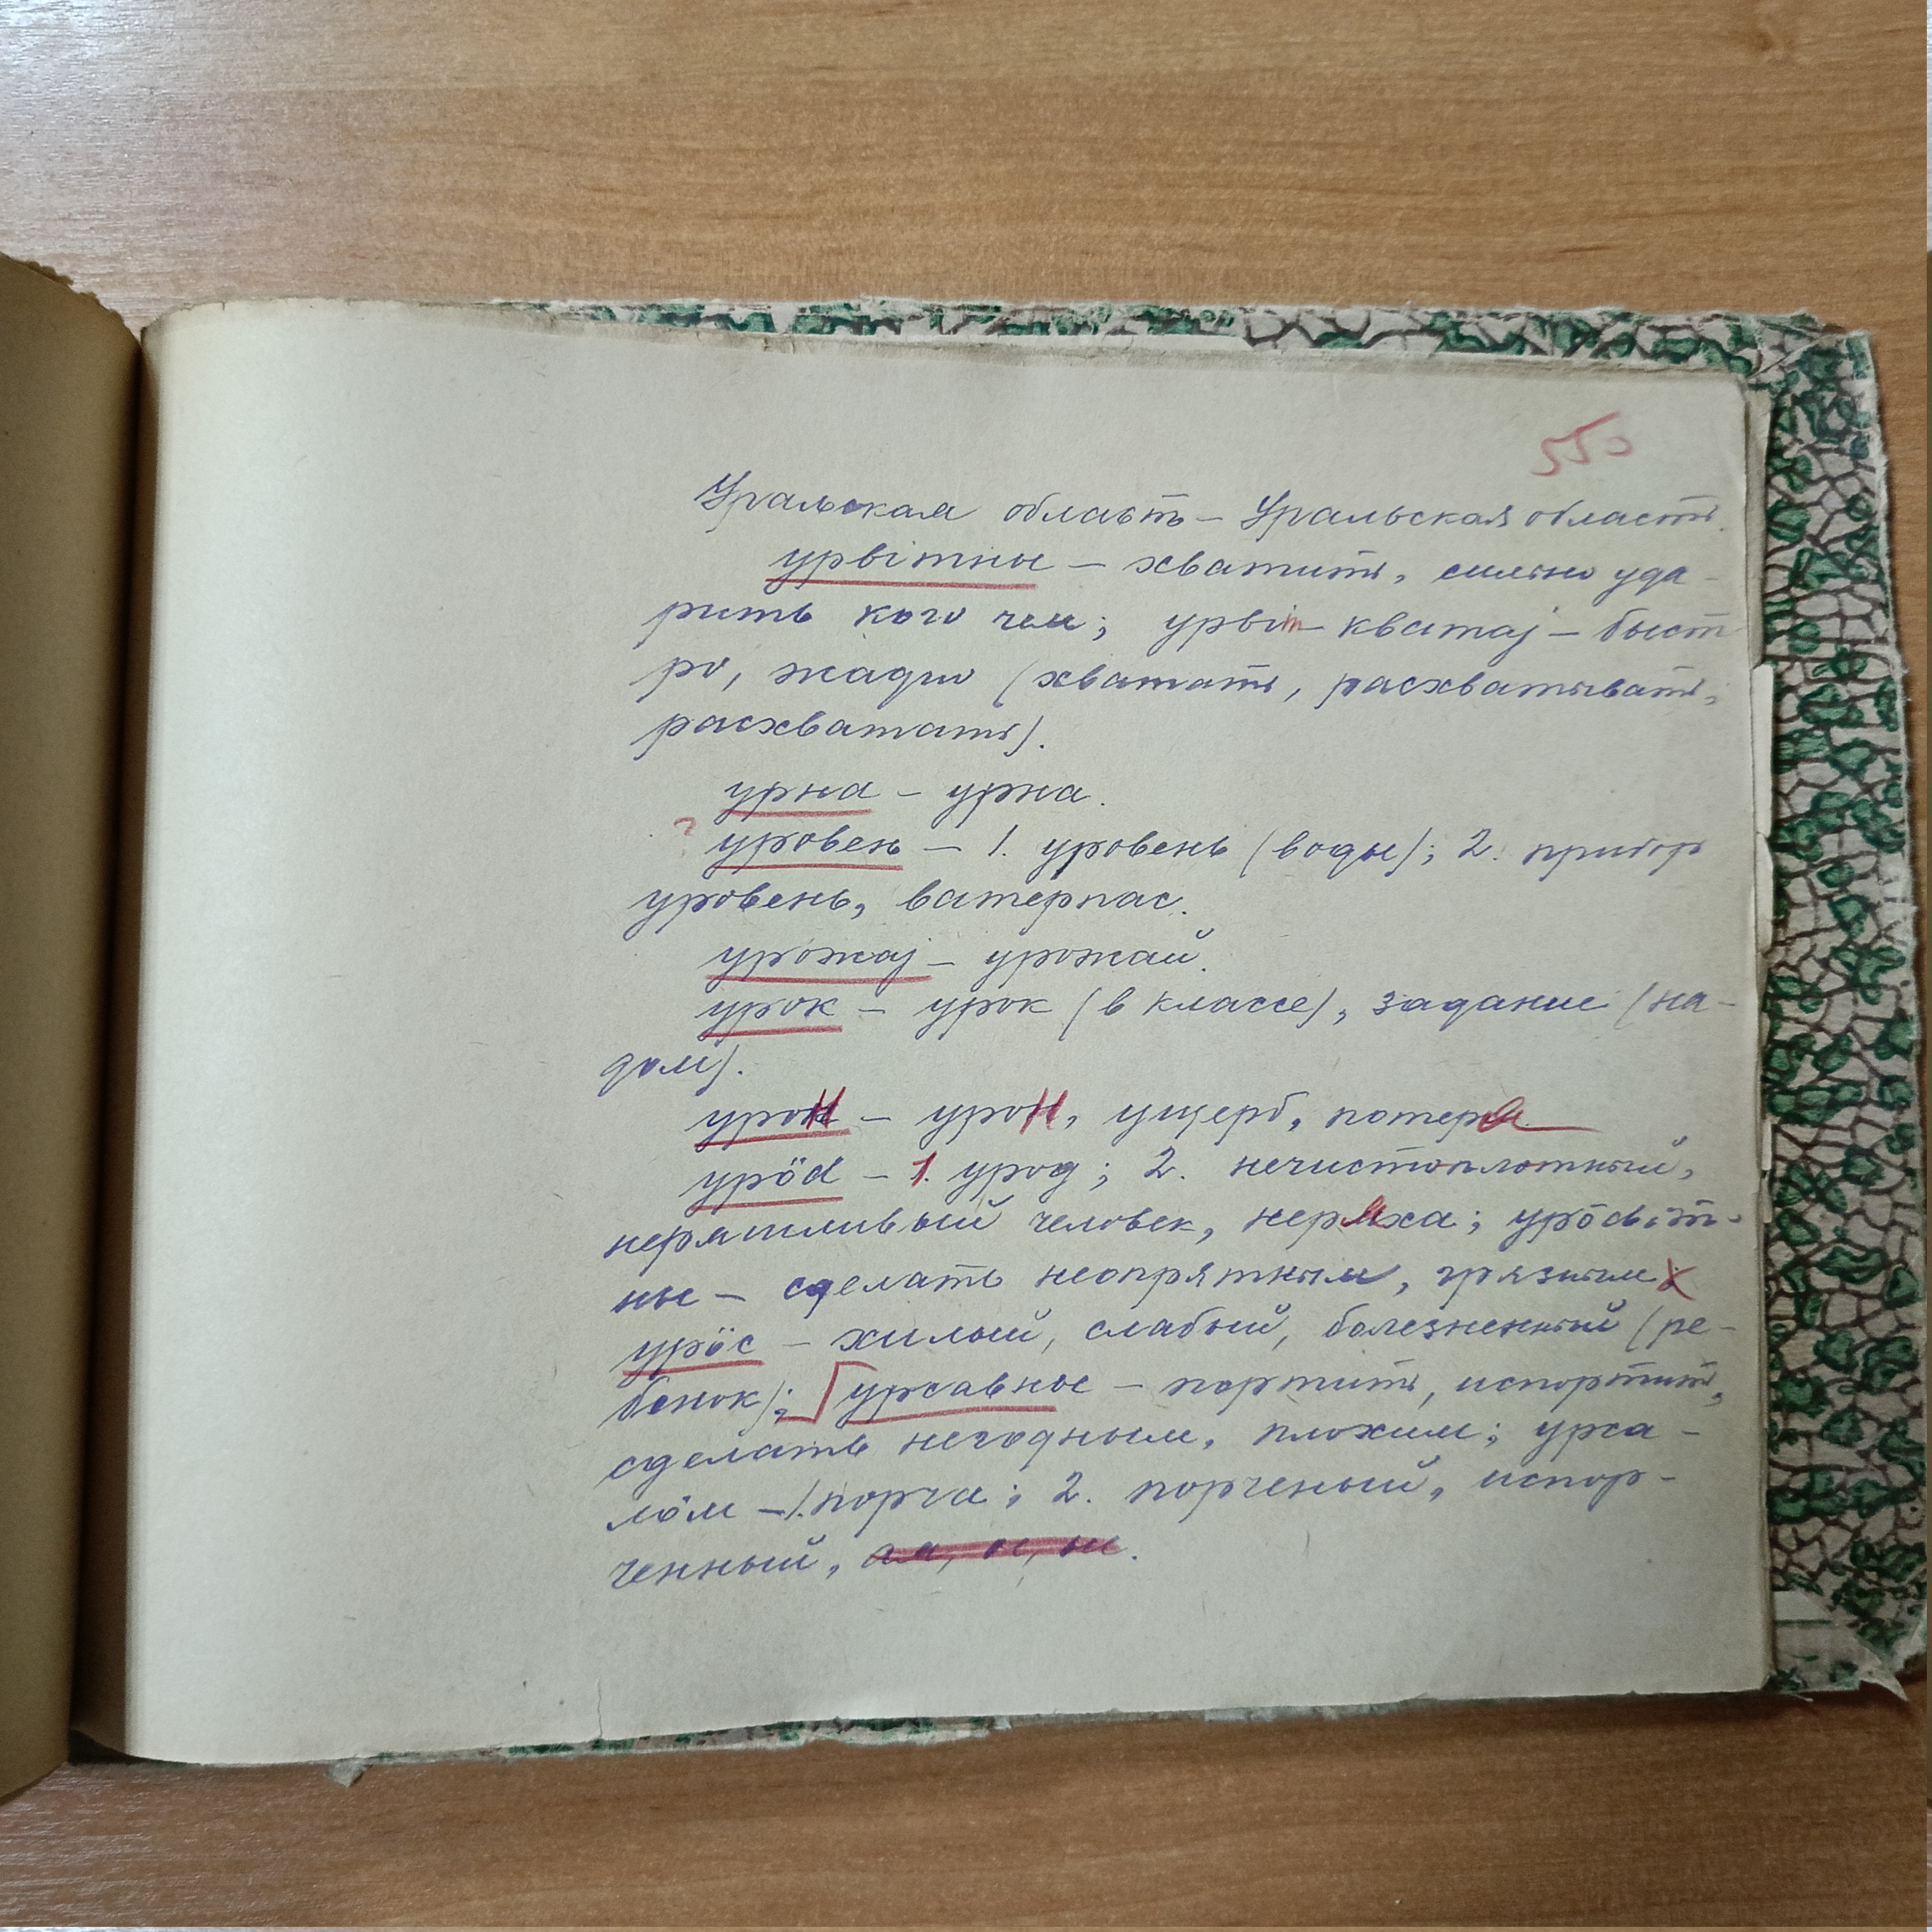 550
Уральская область – Уральская область.
урвітны – хватить, сильно уда-
рить кого чем; урвіт кватај – быст
ро, жадно (хватать, расхватывать,
расхватать).
урна – урна.
? уровень – 1. уровень (воды); 2. прибор
уровень, ватерпас.
урожај – урожай.
урок – урок (в классе), задание (на-
дом).
урон – урон, ущерб, потеря
урӧd – 1. урод; 2. нечистоплотный,
неряшливый человек, неряха; урӧdвіт-
ны – сделать неопрятным, грязным
урӧс – хилый, слабый, болезненный (ре-
бенок); урсавны – портить, испортить,
сделать негодным, плохим; урса-
лӧм – 1. порча; 2. порченый, испор-
ченный, ая, ое, ые.